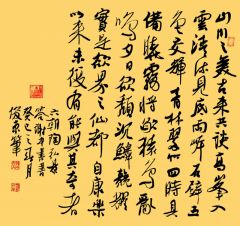 山川之美古來共談高峯入
雲清流見底兩岸石壁五
色交輝青林翠竹四時具
備曉霧將歇猿鳥亂
鳴夕日欲頹沉鱗競躍
實是欲界之仙都自康樂
以來未復有能與其奇者
六朝陶弘景
答謝中書書
癸巳之月
筆